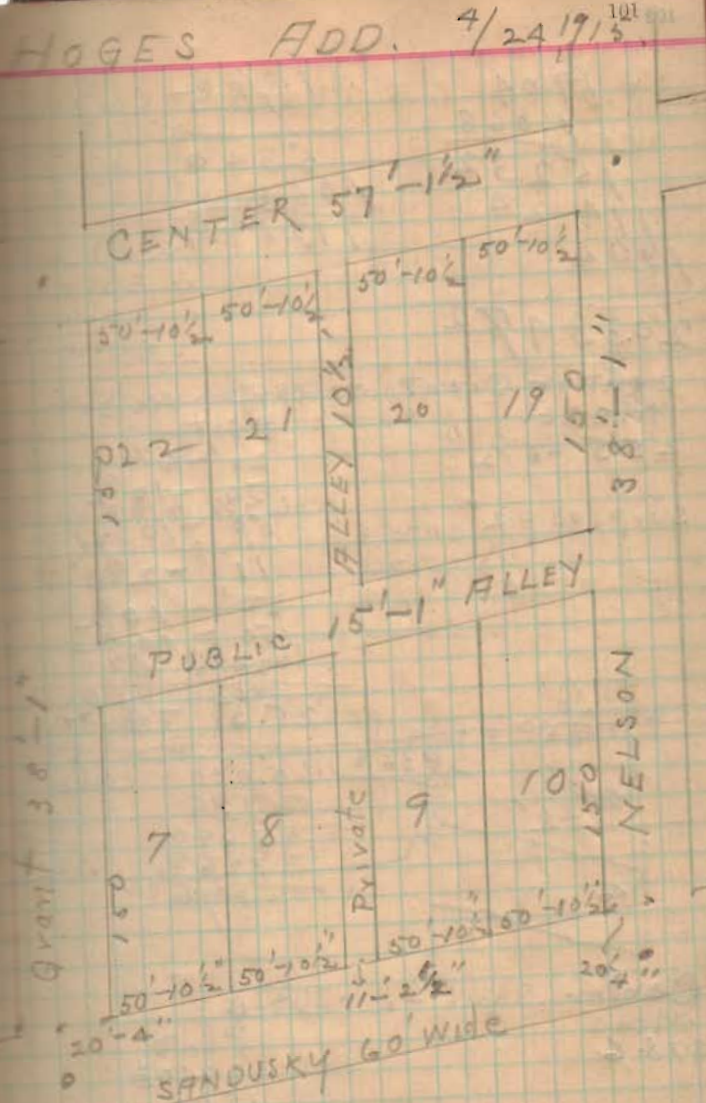 101
HOGES ADD. 4/24,1913.
CENTER 57'-1 1/2"
50'-10 1/2 50'-10 1/2 50'-10 1/2 50'-10 1/2
22 21 ALLEY 10 1/2' 20 19
150 150 38'-1"
PUBLIC 15'-1" ALLEY
Grant 38'-1"
7 8 Private 9 10 NELSON
150 150
50'-10 1/2" 50'-10 1/2" 50'-10 1/2" 50'-10 1/2"
20'-4" 20'-4"
SANDUSKY 60' Wide